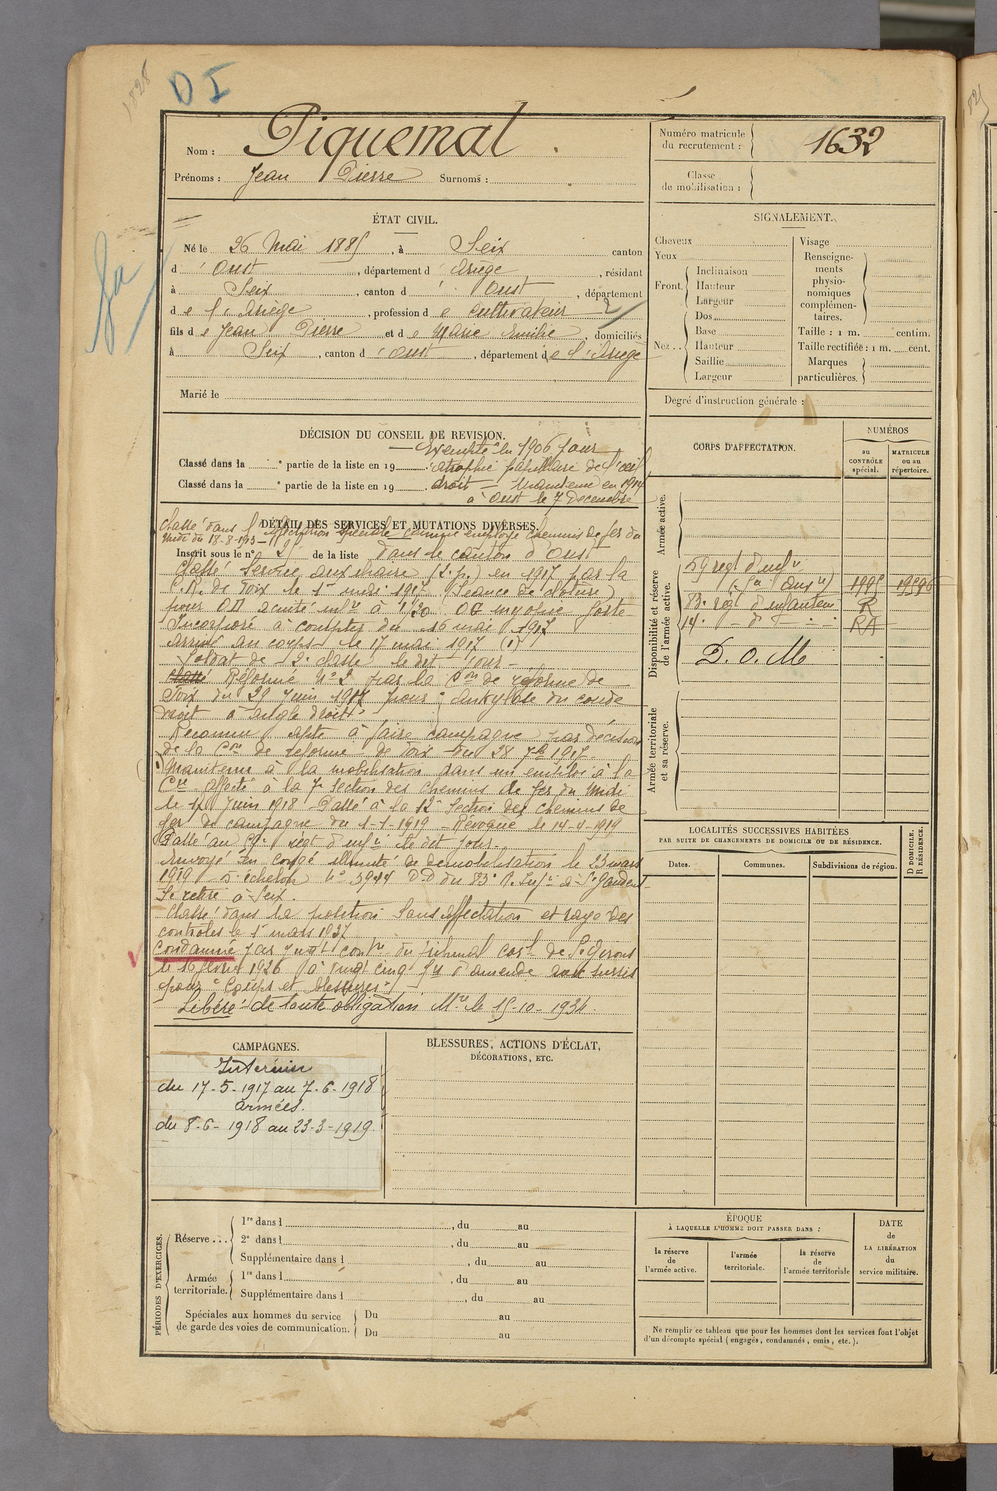 1528
D I
Nom : Piquemal
Prénoms : Jean Pierre Surnoms :
Numéro matricule du recrutement : 1632
Classe de mobilisation :
ÉTAT CIVIL.
Né le 26 Mai 1885, à Seix canton
d'Oust, département d'Ariège, résidant
à Seix, canton d'Oust, département
de l'Ariège, profession de cultivateur
fils de Jean Pierre et de Marie Emilie, domiciliés
à Seix, canton d'Oust, département de l'Ariège
Marié le
SIGNALEMENT.
Cheveux
Yeux
Front. Inclinaison
Hauteur
Largeur
Nez.. Dos
Base
Hauteur
Saillie
Largeur
Visage
Renseignements physionomiques complémentaires.
Taille : 1 m. centim.
Taille rectifiée : 1 m. cent.
Marques particulières.
Degré d'instruction générale :
DÉCISION DU CONSEIL DE REVISION.
Exempté en 1906 pour
Classé dans la e partie de la liste en 19 atrophie papillaire de l'œil
Classé dans la e partie de la liste en 19 droit – Maintenu en 1914
à Oust le 7 Décembre
DÉTAIL DES SERVICES ET MUTATIONS DIVERSES.
Classé dans l'affectation spéciale comme employé chemins de fer du
Midi du 18-8-193
Inscrit sous le n° 25 de la liste dans le canton d'Oust
Classé Service auxiliaire (S.p.) en 1917 par la
C.R. de Foix le 1er mars 1917 (Séance de clôture)
pour OD acuité infre à 1/20 OG myopie forte
Incorporé à compter du 16 mai 1917
Arrivé au corps le 17 mai 1917 (1)
Soldat de 2e classe le dit jour –
Réformé N°2 par la Con de réforme de
Foix du 29 juin 1917 pour : ankylose du coude
droit à angle droit
Reconnu apte à faire campagne par décision
de la Con de réforme de Foix du 28 7bre 1917.
Maintenu à la mobilisation dans un emploi à la
Cie affecté à la 7e section des chemins de fer du Midi
le 12 Juin 1918 – Passé à la 12e Section des chemins de
fer de campagne du 1-1-1919 – Révoqué le 14-1-1919
Passé au 14e regt d'infie le dit jour.
Envoyé en congé illimité de démobilisation le 23 mars
1919 échelon N° 3944 D.D du 83e R. Infie à St Gaudens
Se retire à Seix.
Classé dans la position Sans Affectation et rayé des
contrôles le 1er mars 1927
Condamné par jugemt contre du tribunal corl de St Girons
le 16 février 1926 à vingt cinq frs d'amende avec sursis
pour "Coups et blessures"
Libéré de toute obligation Mre le 15-10-1934.
CORPS D'AFFECTATION.
NUMÉROS
au CONTRÔLE spécial.
MATRICULE ou au répertoire.
Armée active.
Disponibilité et réserve de l'armée active.
59 regt d'infie
83e régt d'infanterie R
14e – d° – RA
D. O. M
Armée territoriale et sa réserve.
LOCALITÉS SUCCESSIVES HABITÉES
PAR SUITE DE CHANGEMENTS DE DOMICILE OU DE RÉSIDENCE.
Dates. Communes. Subdivisions de région.
D DOMICILE. R RÉSIDENCE.
CAMPAGNES.
Intérieur
du 17-5-1917 au 7-6-1918
Armées.
du 8-6-1918 au 23-3-1919.
BLESSURES, ACTIONS D'ÉCLAT,
DÉCORATIONS, ETC.
PÉRIODES D'EXERCICES.
Réserve... 1re dans l , du au
2e dans l , du au
Supplémentaire dans l , du au
Armée territoriale. 1re dans l , du au
Supplémentaire dans l , du au
Spéciales aux hommes du service de garde des voies de communication. Du au
Du au
ÉPOQUE
À LAQUELLE L'HOMME DOIT PASSER DANS :
la réserve de l'armée active.
l'armée territoriale.
la réserve de l'armée territoriale
DATE DE LA LIBÉRATION du service militaire.
Ne remplir ce tableau que pour les hommes dont les services font l'objet
d'un décompte spécial (engagés, condamnés, omis, etc.).